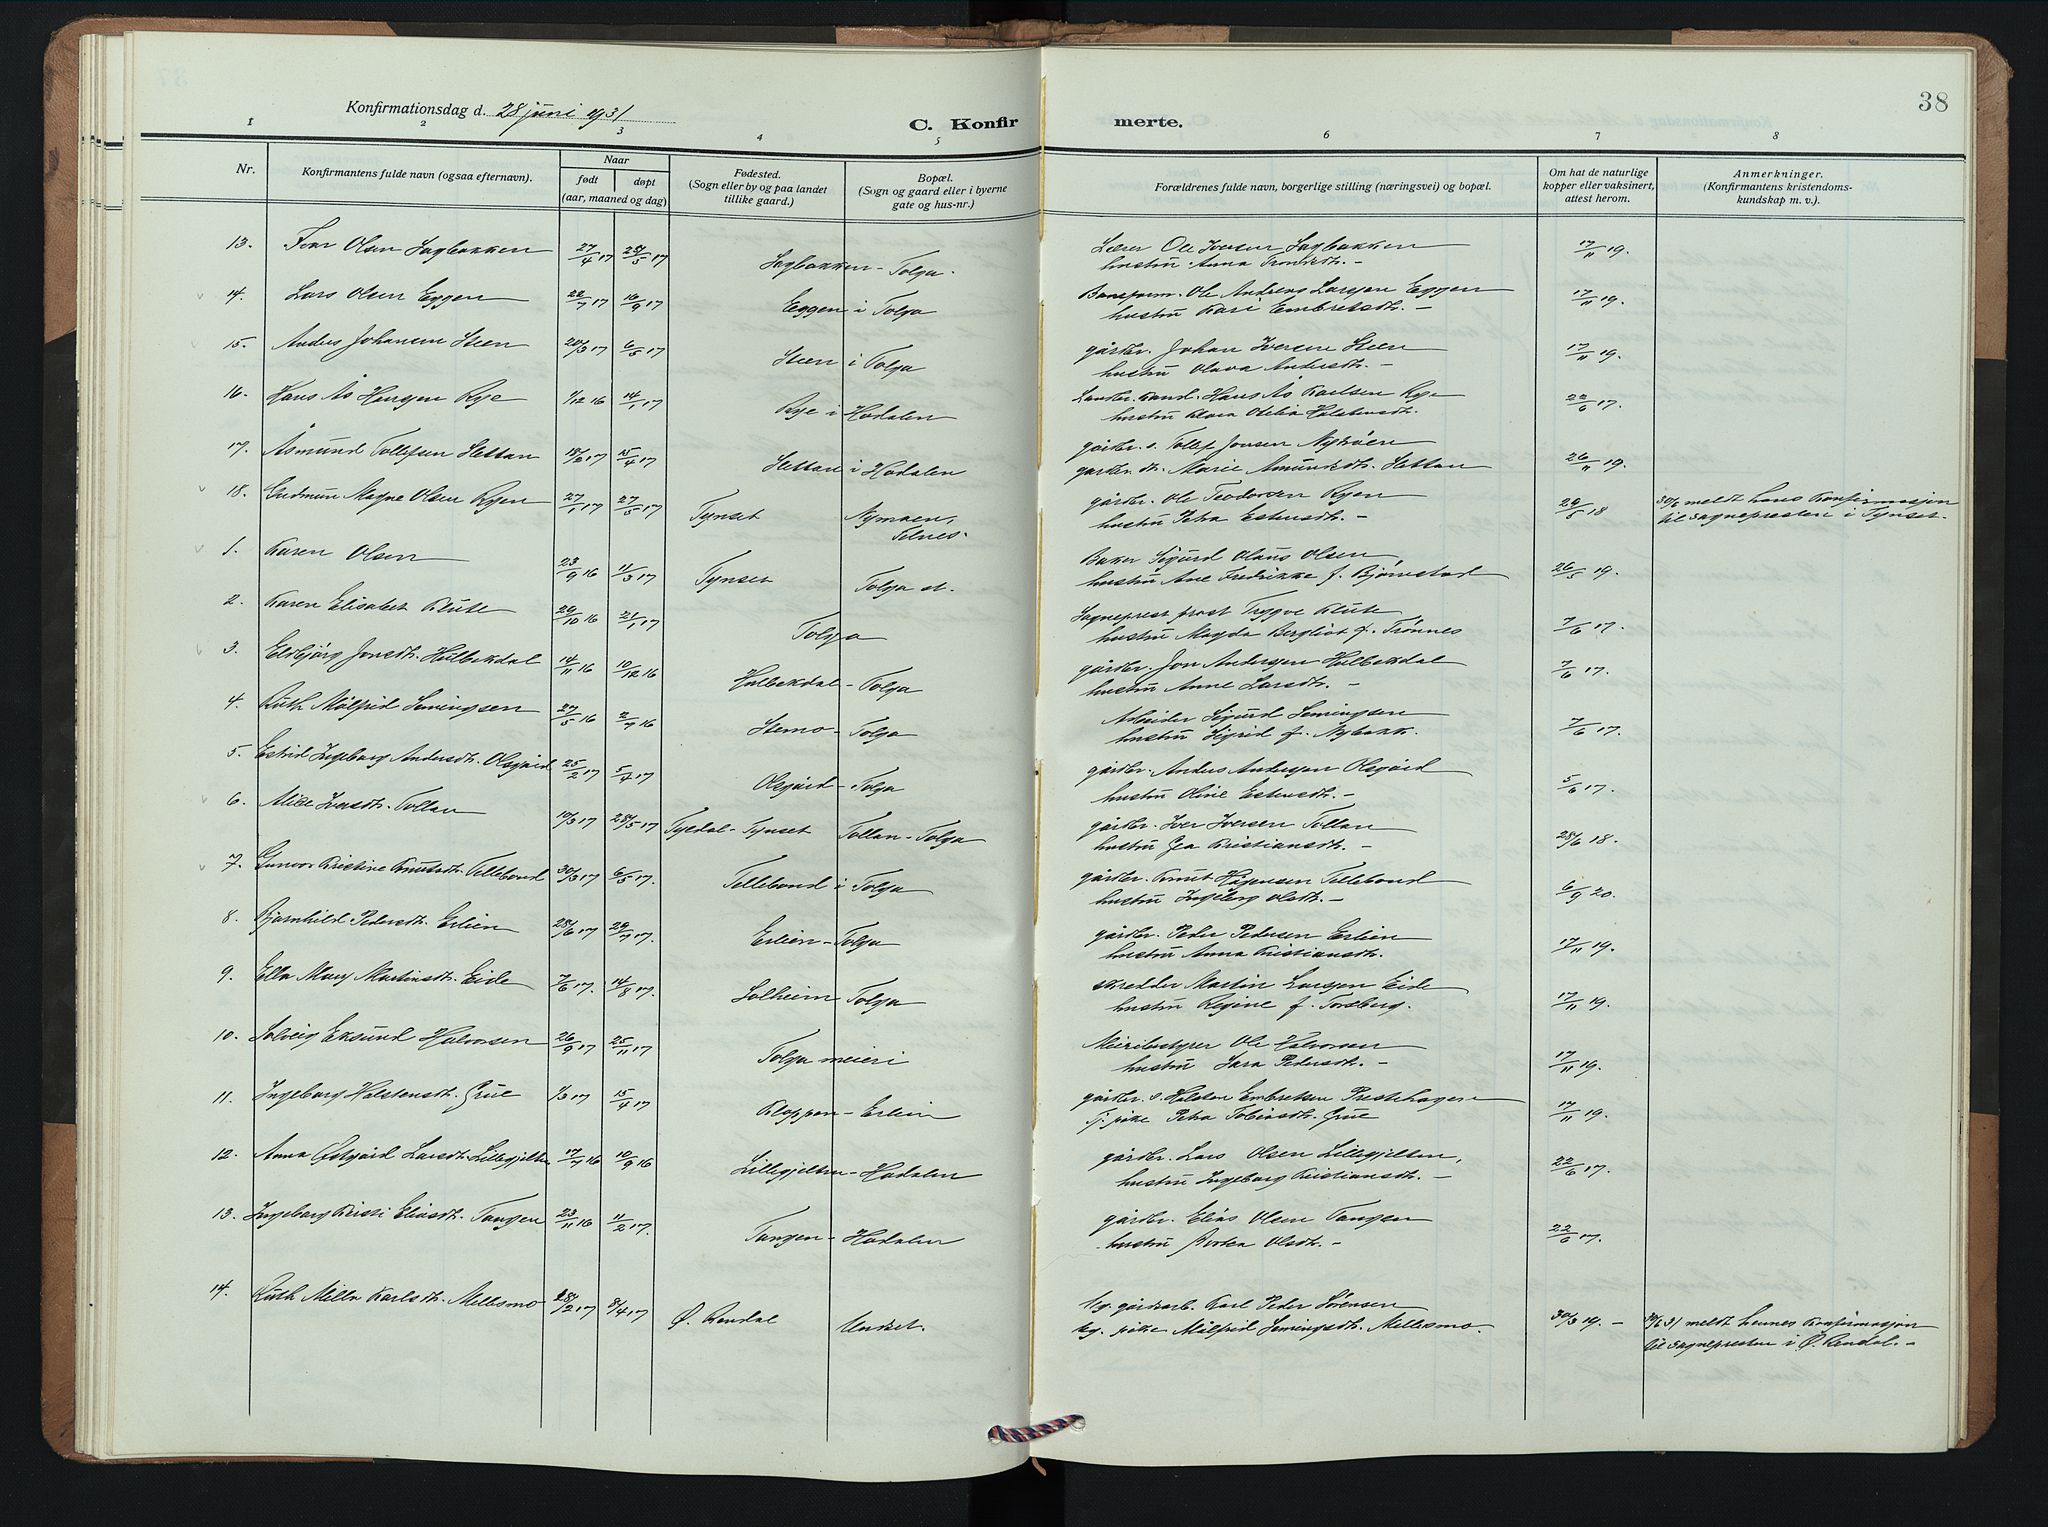 38
Konfirmationsdag d. 28 juni 1931
C. Konfirmerte.
1 2 3 4 5 6 7 8
Nr. Konfirmantens fulde navn (ogsaa efternavn). Naar født døpt (aar, maaned og dag) Fødested. (Sogn eller by og paa landet tillike gaard.) Bopæl. (Sogn og gaard eller i byerne gate og hus-nr.) Forældrenes fulde navn, borgerlige stilling (næringsvei) og bopæl. Om hat de naturlige kopper eller vaksinert, attest herom. Anmerkninger. (Konfirmantens kristendomskundskap m. v.).
13. Ivar Olsen Sagbakken 27/4 17 28/5 17 Sagbakken - Tolga. Lærer Ole Iversen Sagbakken 17/11 19.
hustru Anna Trondsdt. -
14. Lars Olsen Eggen 22/7 17 16/9 17 Eggen i Tolga Baneform. Ole Andreas Larsen Eggen 17/11 19.
hustru Kari Embretsdt. -
15. Anders Johansen Steen 20/3 17 6/5 17 Steen i Tolga gårdbr. Johan Iversen Steen 17/11 19.
hustru Olava Andersdt. -
16. Hans Ås Hansen Rye 1/12 16 14/1 17 Rye i Hodalen Landbr. kand. Hans Ås Karlsen Rye 22/6 17.
hustru Klara Otilia Holstensdt.
17. Åsmund Tollefsen Stettan 18/2 17 15/4 17 Stettan i Hodalen gårdbr. s. Tollef Jonsen Nystrøen 26/11 19.
gardbr. dt. Marie Amundsdt. Stettan
18. Gudmun Magne Olsen Ryen 27/1 17 27/5 17 Tynset Nymoen, Telnes. gårdbr. Ole Teodorsen Ryen 29/5 18 30/6 meldt hans Konfirmasjon
hustru Petra Estensdt. - til sognepresten i Tynset.
1. Karen Olsen 23/9 16 11/3 17 Tynset Tolga st. Baker Sigurd Olaus Olsen, 26/5 19.
hustru Ane Fredrikke f. Bjørnstad
2. Karen Elisabet Klüte 29/10 16 21/1 17 Tolga Sogneprest prost Trygve Klüte 7/6 17.
hustru Magda Bergliot f. Trønnes
3. Elsbjørg Jonsdt. Hulbekdal 14/11 16 10/12 16 Hulbekdal - Tolga gårdbr. Jon Andersen Hulbekdal 7/6 17.
hustru Anne Larsdt. -
4. Ruth Målfrid Semingsen 27/5 16 2/7 16 Stemo - Tolga Arbeider Sigurd Semingsen 7/6 17.
hustru Sigrid f. Nybakk.
5. Estrid Ingeborg Andersdt. Olsgård 25/2 17 5/4 17 Olsgård - Tolga gårdbr. Anders Andersen Olsgård 5/6 17.
hustru Oline Estensdt. -
6. Alide Iversdt. Tollan 10/3 17 28/5 17 Tyldal - Tynset Tollan - Tolga gårdbr. Iver Iversen Tollan 28/6 18.
hustru Gea Kristiansdt. -
7. Gunvor Kristine Knutsdt. Tellebond 30/3 17 6/5 17. Tellebond i Tolga gårdbr. Knut Hågensen Tellebond 6/9 20.
hustru Ingeborg Olsdt. -
8. Bjarnhild Pedersdt. Erlien 28/6 17 29/7 17. Erlien - Tolga gårdbr. Peder Pedersen Erlien 17/11 19.
hustru Anna Kristiansdt.
9. Ella Mary Martinsdt. Eide 7/6 17. 14/8 17. Solheim Tolga skredder Martin Larsen Eide 17/11 19.
hustru Regine f. Forsberg.
10. Solveig Eksund Halvorsen 26/9 17 25/11 17 Tolga meieri Meieribestyrer Ole Halvorsen 17/11 19.
hustru Sara Pedersdt. -
11. Ingeborg Holstensdt. Grue 1/3 17 15/4 17 Kloppen - Erlien gårdbr. s. Holsten Embretsen Prestehagen 17/11 19.
Tj. pike Petra Tobiasdt. Grue
12. Anna Østgård Larsdt. Lillegjelten 17/7 16 10/9 16 Lillegjelten - Hodalen gårdbr. Lars Olsen Lillegjelten, 22/6 17.
hustru Ingeborg Kristiansdt. -
13. Ingeborg Kersti Eliasdt. Tangen 23/11 16 11/2 17. Tangen - Hodalen gårdbr. Elias Olsen Tangen 22/6 17.
hustru Berthea Olsdt. -
14. Ruth Milla Karlsdt. Mellesmo 28/2 17 8/4 17 Ø. Rendal Undset. Ug. gårdsarb. Karl Peder Sørensen 30/3 19. - 30/6 31 meldt hennes Konfirmasjon
ug. pike Målfrid Semingsdt. Mellesmo. til sognepresten i Ø. Rendal. -